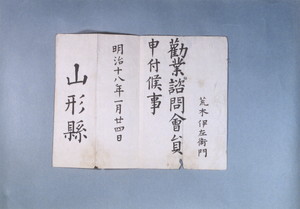 荒木伊左衛門
勸業諮問會員
申付候事
明治十八年一月廿四日
山形縣